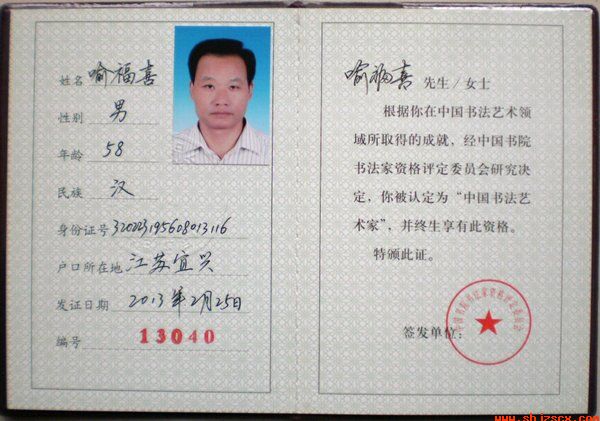 姓名 喻福喜
性别 男
年龄 58
民族 汉
身份证号 320223195608013116
户口所在地 江苏宜兴
发证日期 2013年2月25日
编号 13040
喻福喜 先生/女士
根据你在中国书法艺术领
域所取得的成就，经中国书院
书法家资格评定委员会研究决
定，你被认定为“中国书法艺
术家”，并终生享有此资格。
特颁此证。
签发单位：
中国书院书法家资格评定委员会